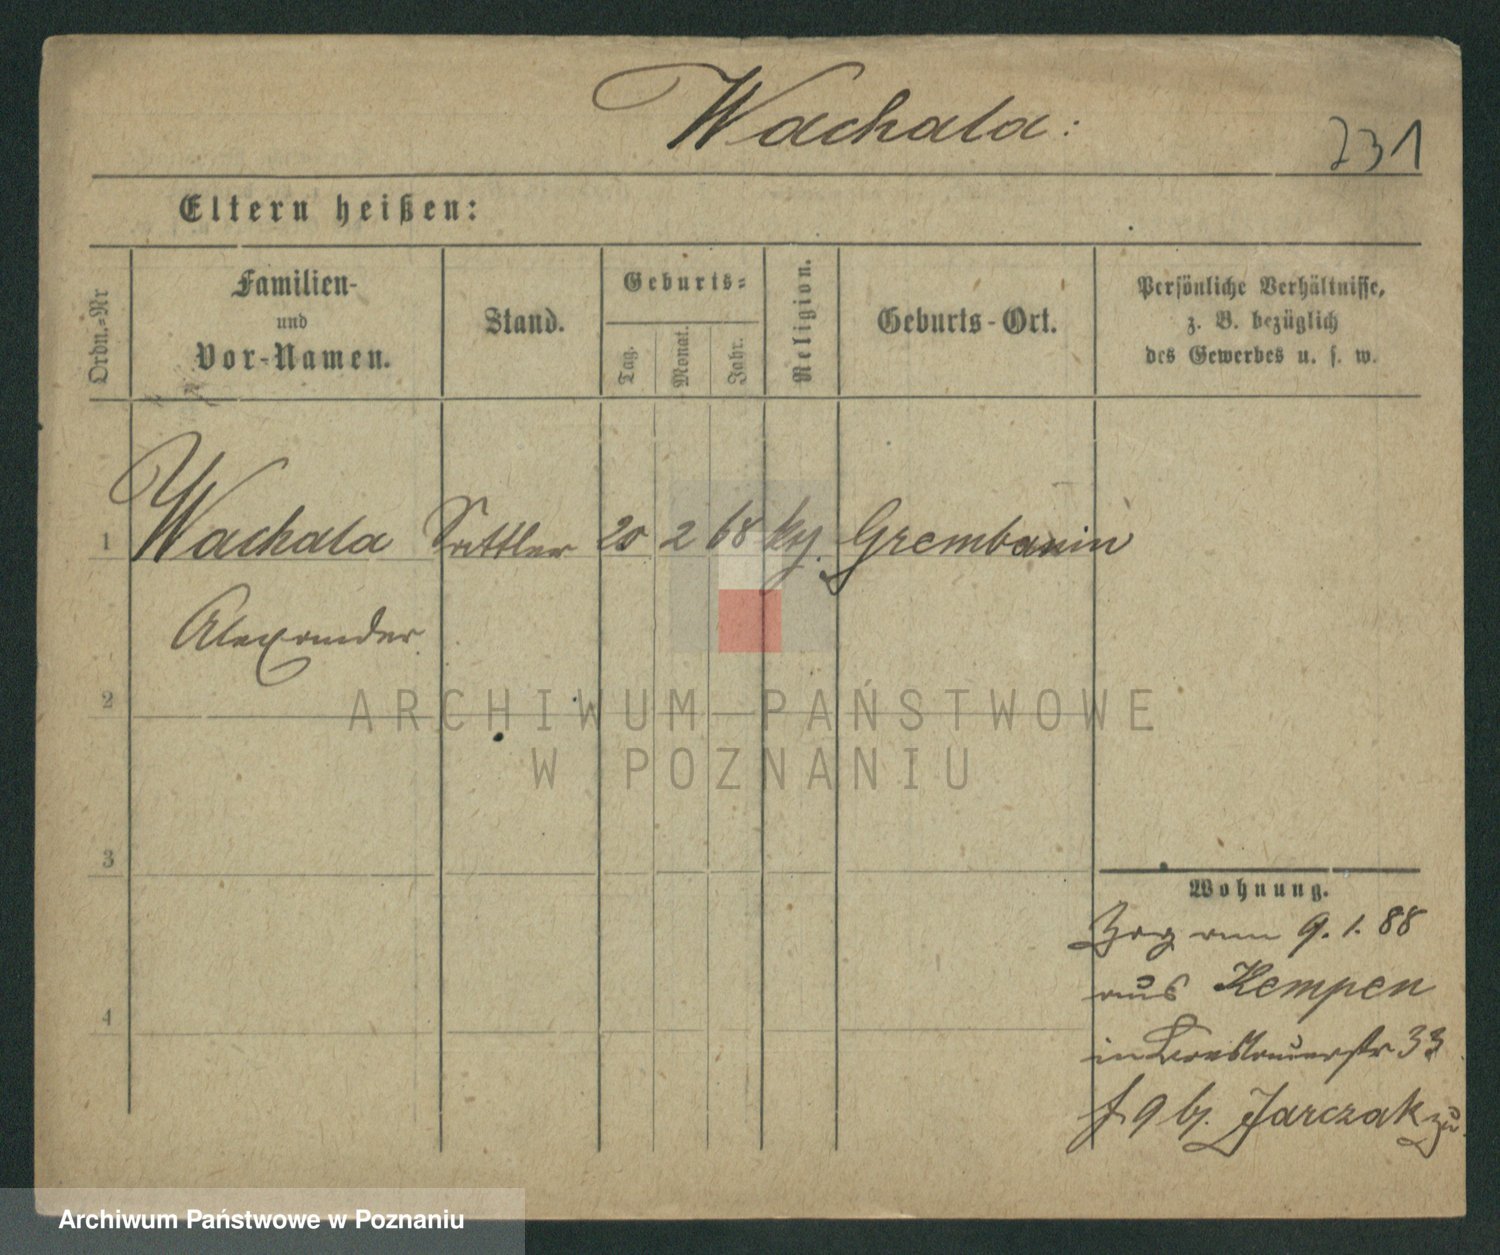 Wachala:
231
Eltern heißen:
Ordn.-Nr
Familien-
und
Vor-Namen.
Stand.
Geburts-
Tag.
Monat.
Jahr.
Religion.
Geburts-Ort.
Persönliche Verhältnisse,
z. B. bezüglich
des Gewerbes u. s. w.
1 Wachala Sattler 20 2 68 kz. Grembanin
Alexander
2
ARCHIWUM PAŃSTWOWE
W POZNANIU
3
4
Wohnung.
Zog am 9. 1. 88
aus Kempen
in 33
Jarczak zu
Archiwum Państwowe w Poznaniu